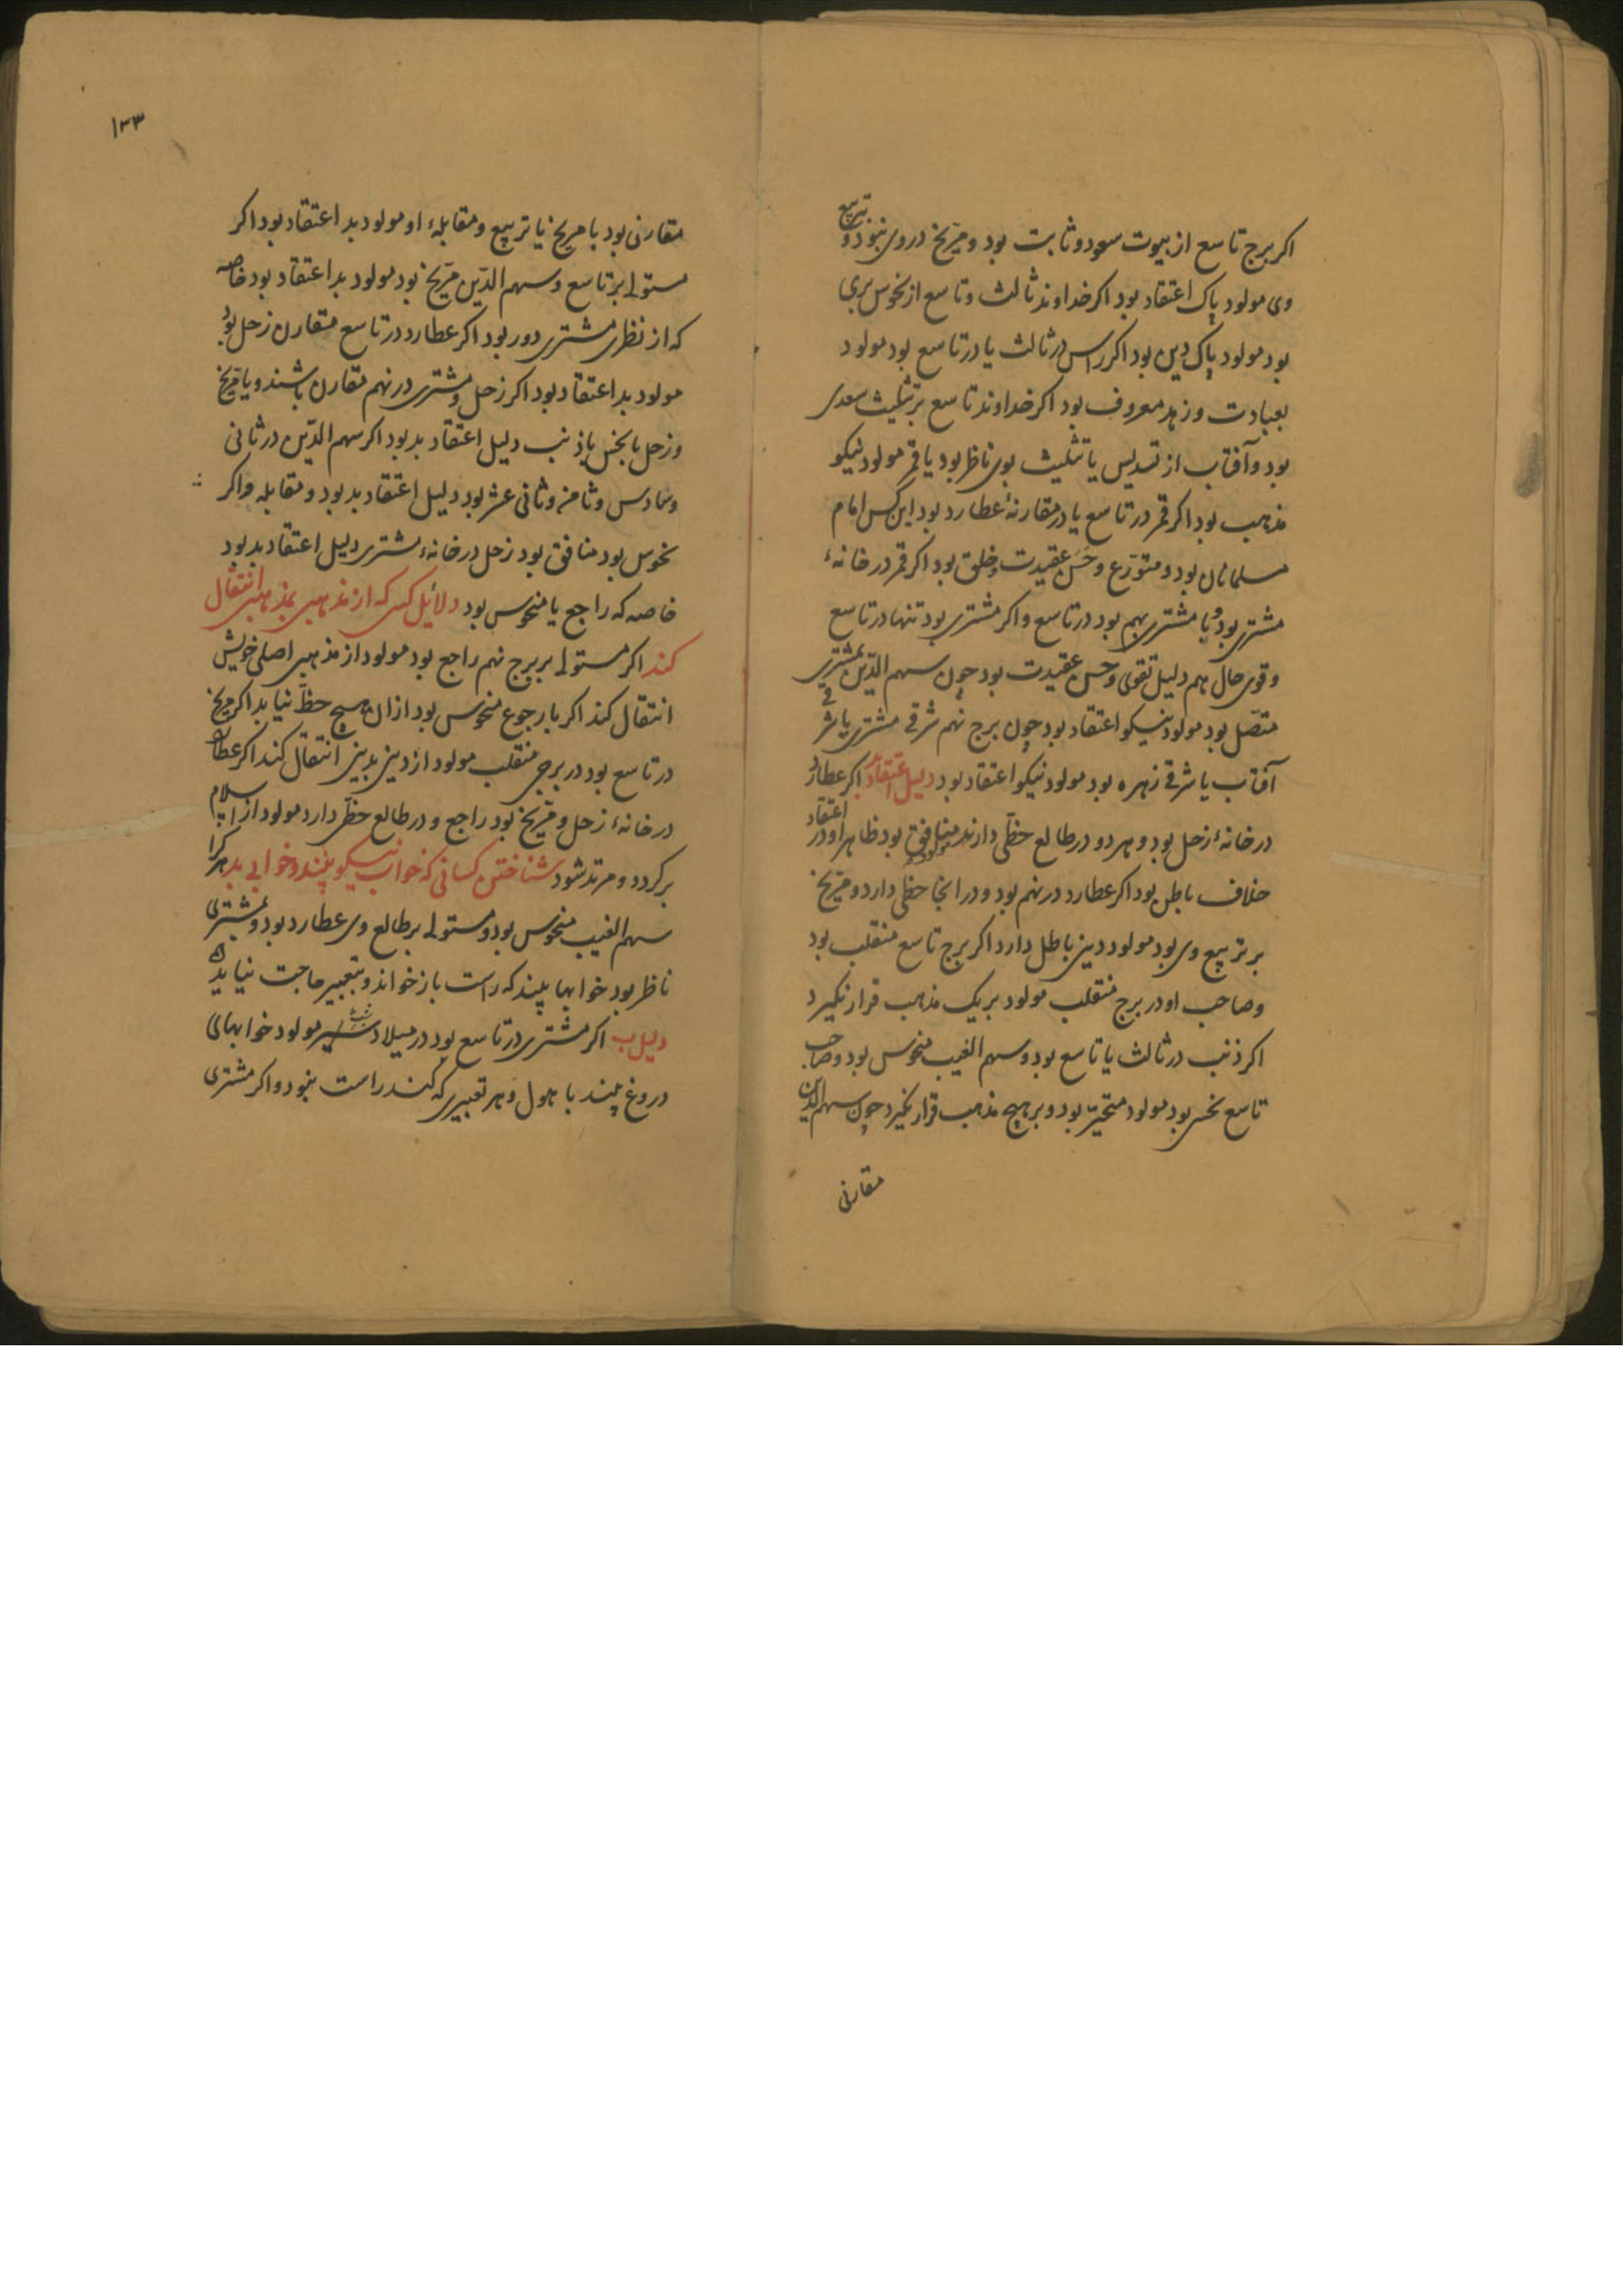 اکر برج تاسع از بیوت سعود و ثابت بود و مریخ در وی نبود و تربیع
وی مولود پاک اعتقاد بود اکر خداوند ثالث و تاسع از نحوس بری
بود مولود پاک دین بود اکر راس در ثالث یا در تاسع بود مولود
بعبادت و زهد معروف بود اکر خداوند تاسع بر تثلیث سعدی
بود و آفتاب از تسدیس یا تثلیث بوی ناظر بود یا قمر مولود نیکو
مذهب بود اکر قمر در تاسع یا در مقارنهٔ عطارد بود این کس امام
مسلمانان بود و متورّع و حسن عقیدت و خلق بود اکر قمر در خانهٔ
مشتری بود و یا مشتری بهم بود در تاسع و اکر مشتری بود تنها در تاسع
و قوی حال هم دلیل تقوی و حسن عقیدت بود چون سهم الدّین بمشتری
متصّل بود مولود نیکو اعتقاد بود چون برج نهم شرف مشتری یا شرف
آفتاب یا شرف زهره بود مولود نیکو اعتقاد بود دلیل اعتقاد بد اکر عطارد
در خانهٔ زحل بود و هر دو در طالع حظّی دارند مولود منافق بود ظاهر او در اعتقاد
خلاف باطن بود اکر عطارد در نهم بود و در انجا حظی دارد و مریخ
بر تربیع وی بود مولود دین باطل دارد اکر برج تاسع منقلب بود
و صاحب او در برج منقلب مولود بر یک مذهب قرار نکیرد
اکر ذنب در ثالث یا تاسع بود و سهم الغیب منحوس بود و صاحب
تاسع نحس بود مولود متحیّر بود و بر هیچ مذهب قرار نکیرد چون سهم الدّین
مقارنی
۱۳۳
مقارنی بود با مریخ یا تربیع و مقابلهٔ او مولود بد اعتقاد بود اکر
مستولی بر تاسع و سهم الدّین مرّیخ بود مولود بد اعتقاد بود خاصه
که از نظری مشتری دور بود اکر عطارد در تاسع مقارن زحل بود
مولود بد اعتقاد بود اکر زحل و مشتری در نهم مقارن باشند و یا مریخ
و زحل با نحس یا ذنب دلیل اعتقاد بد بود اکر سهم الدّین در ثانی
و سادس و ثامن و ثانی عشر بود دلیل اعتقاد بد بود و مقابله و اکر
نحوس بود منافق بود زحل در خانهٔ مشتری دلیل اعتقاد بد بود
خاصه که راجع یا منحوس بود دلائل کسی که از مذهبی بمذهبی انتقال
کند اکر مستولی بر برج نهم راجع بود مولود از مذهبی اصلی خویش
انتقال کند اکر با رجوع منحوس بود از ان هیچ حظّ نیابد اکر مریخ
در تاسع بود در برجی منقلب مولود از دینی بدینی انتقال کند اکر عطارد
در خانهٔ زحل و مریخ بود راجع و در طالع حظّی دارد مولود از اسلام
برکردد و مرتد شود شناختن کسانی که خواب نیکو بینند و خوابی بد هر کرا
سهم الغیب منحوس بود و مستولی بر طالع وی عطارد بود و بمشتری
ناظر بود خوابها بیند که راست باز خواند و بتعبیر حاجت نیاید
دلیل ب اکر مشتری در تاسع بود در میلاد مولود خوابهای
دروغ بیند با هول و هر تعبیری که کنند راست نبود و اکر مشتری